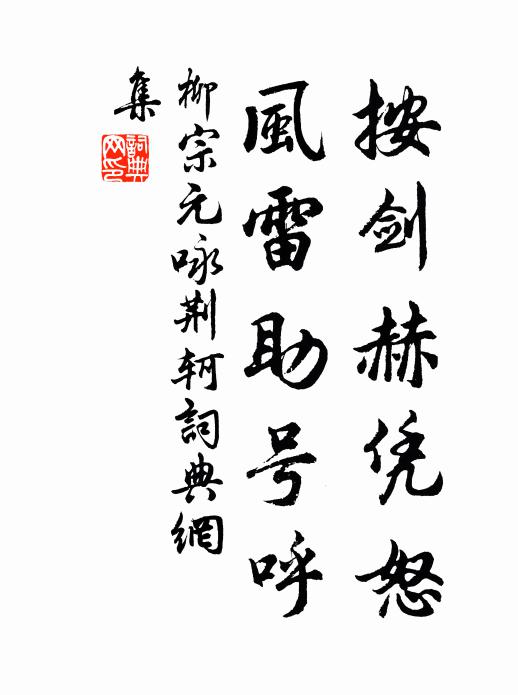 按剑赫凭怒
風雷助号呼
柳宗元咏荆轲詞典網
集
詞典網印